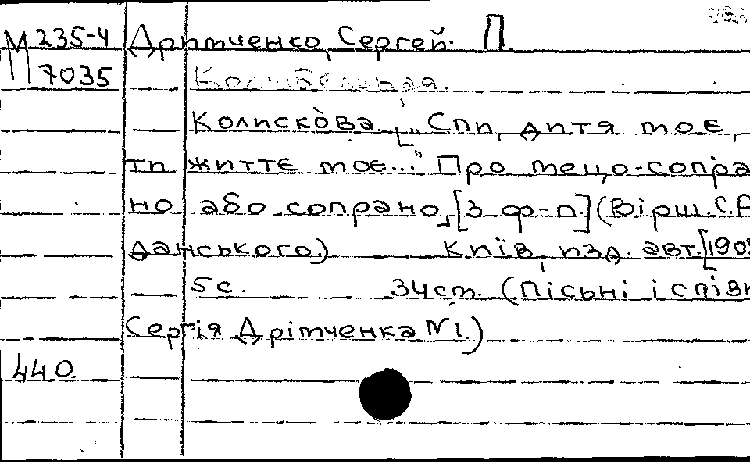 М 235-4 Дритченко, Сергей. П
7035 Колыбельная.
Колискова „Спи, дитя моє,
ти життє моє..." Про меццо-сопра
но або сопрано, [з ф-п.] (Вірш. С.
данського.) Київ, изд. авт. [190
5 с. 34 см. (Пісьні і спів
Сергія Дрітченка №1)
440